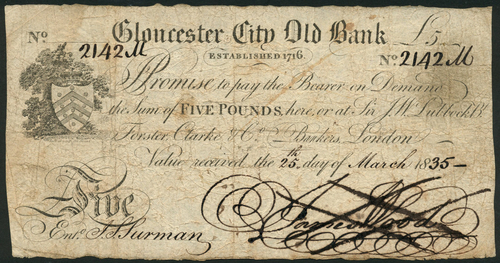 Gloucester City Old Bank £5
ESTABLISHED 1716.
No. 2142 M No. 2142 M
I Promise to pay the Bearer on Demand
the Sum of FIVE POUNDS, here, or at Sir J. W. Lubbock Bt.
Forster, Clarke & Co. Bankers, London
Value received, the 25th day of March 1835
Five
Entd. Surman
James Wood